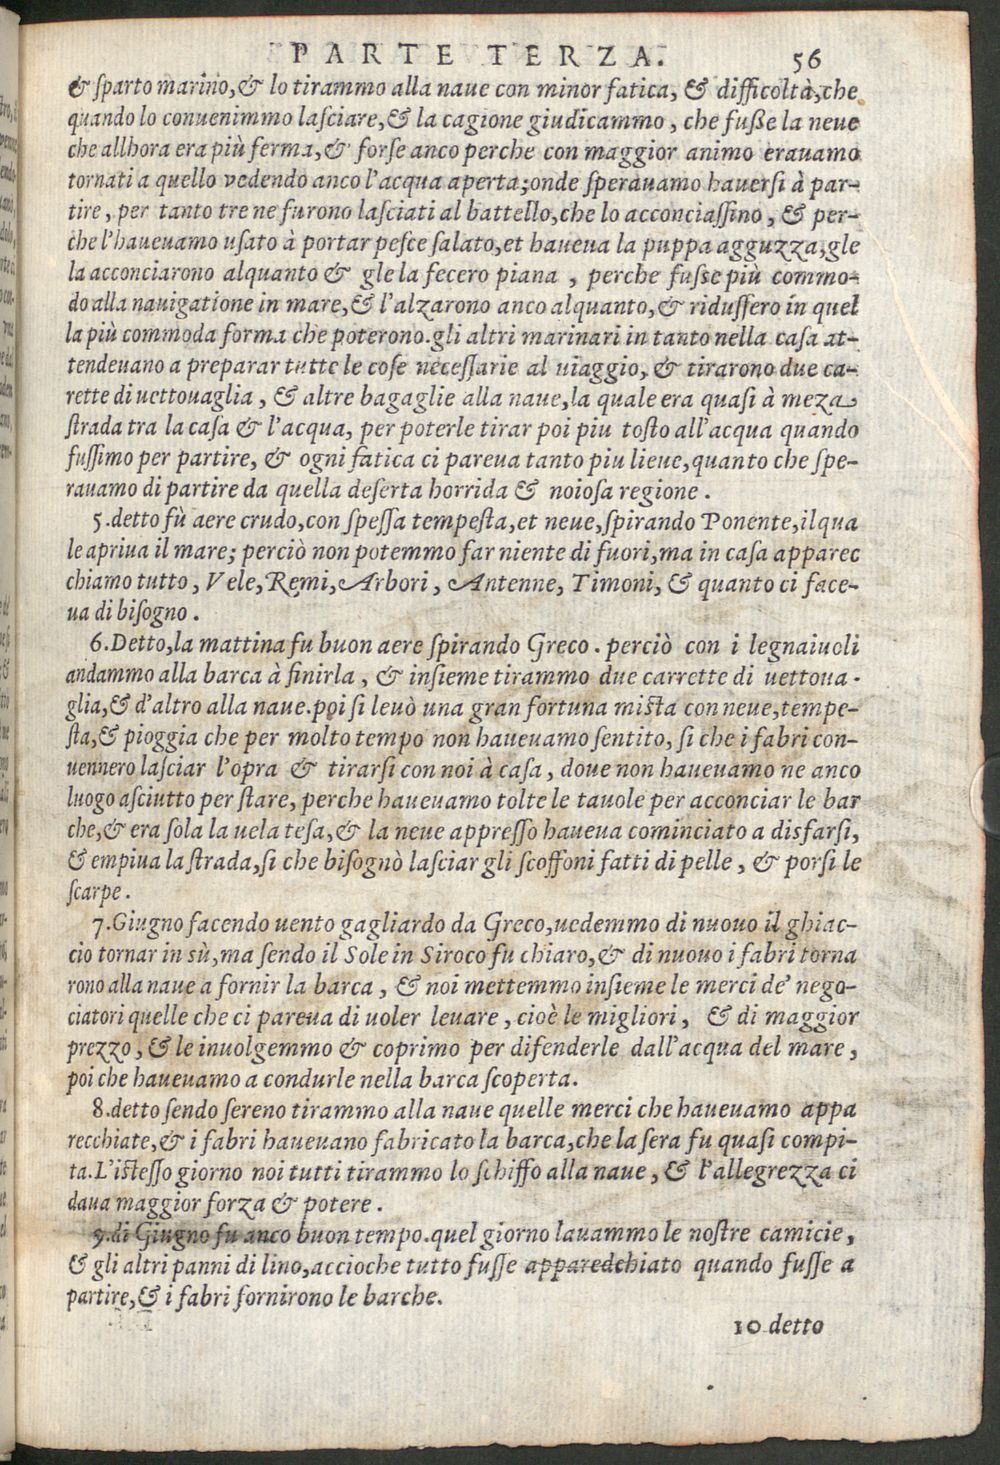 PARTE TERZA. 56
& ſparto marino, & lo tirammo alla naue con minor fatica, & difficoltà, che
quando lo conuenimmo laſciare, & la cagione giudicammo, che fuſſe la neue
che allhora era più ferma, & forſe anco perche con maggior animo erauamo
tornati a quello vedendo anco l'acqua aperta; onde ſperauamo hauerſi à par-
tire, per tanto tre ne furono laſciati al battello, che lo acconciaſſino, & per-
che l'haueuamo uſato à portar peſce ſalato, et haueua la puppa agguzza, gle
la acconciarono alquanto & gle la fecero piana, perche fuſſe più commo-
do alla nauigatione in mare, & l'alzarono anco alquanto, & riduſſero in quel
la più commoda forma che poterono. gli altri marinari in tanto nella caſa at-
tendeuano a preparar tutte le coſe neceſſarie al uiaggio, & tirarono due ca-
rette di uettouaglia, & altre bagaglie alla naue, la quale era quaſi à meza
ſtrada tra la caſa & l'acqua, per poterle tirar poi piu toſto all'acqua quando
fuſſimo per partire, & ogni fatica ci pareua tanto piu lieue, quanto che ſpe-
rauamo di partire da quella deſerta horrida & noioſa regione.
5. detto fù aere crudo, con ſpeſſa tempeſta, et neue, ſpirando Ponente, il qua
le apriua il mare; perciò non potemmo far niente di fuori, ma in caſa apparec
chiamo tutto, Vele, Remi, Arbori, Antenne, Timoni, & quanto ci face-
ua di biſogno.
6. Detto, la mattina fu buon aere ſpirando Greco. perciò con i legnaiuoli
andammo alla barca à finirla, & inſieme tirammo due carrette di uettoua-
glia, & d'altro alla naue. poi ſi leuò una gran fortuna miſta con neue, tempe-
ſta, & pioggia che per molto tempo non haueuamo ſentito, ſi che i fabri con-
uennero laſciar l'opra & tirarſi con noi à caſa, doue non haueuamo ne anco
luogo aſciutto per ſtare, perche haueuamo tolte le tauole per acconciar le bar
che, & era ſola la uela teſa, & la neue appreſſo haueua cominciato a disfarſi,
& empiua la ſtrada, ſi che biſognò laſciar gli ſcoffoni fatti di pelle, & porſi le
ſcarpe.
7. Giugno facendo uento gagliardo da Greco, uedemmo di nuouo il ghiac-
cio tornar in sù, ma ſendo il Sole in Siroco fu chiaro, & di nuouo i fabri torna
rono alla naue a fornir la barca, & noi mettemmo inſieme le merci de' nego-
ciatori quelle che ci pareua di uoler leuare, cioè le migliori, & di maggior
prezzo, & le inuolgemmo & coprimo per difenderle dall'acqua del mare,
poi che haueuamo a condurle nella barca ſcoperta.
8. detto ſendo ſereno tirammo alla naue quelle merci che haueuamo appa
recchiate, & i fabri haueuano fabricato la barca, che la ſera fu quaſi compi-
ta. L'iſteſſo giorno noi tutti tirammo lo ſchiffo alla naue, & l'allegrezza ci
daua maggior forza & potere.
9. di Giugno fu anco buon tempo. quel giorno lauammo le noſtre camicie,
& gli altri panni di lino, accioche tutto fuſſe apparedchiato quando fuſſe a
partire, & i fabri fornirono le barche.
10 detto